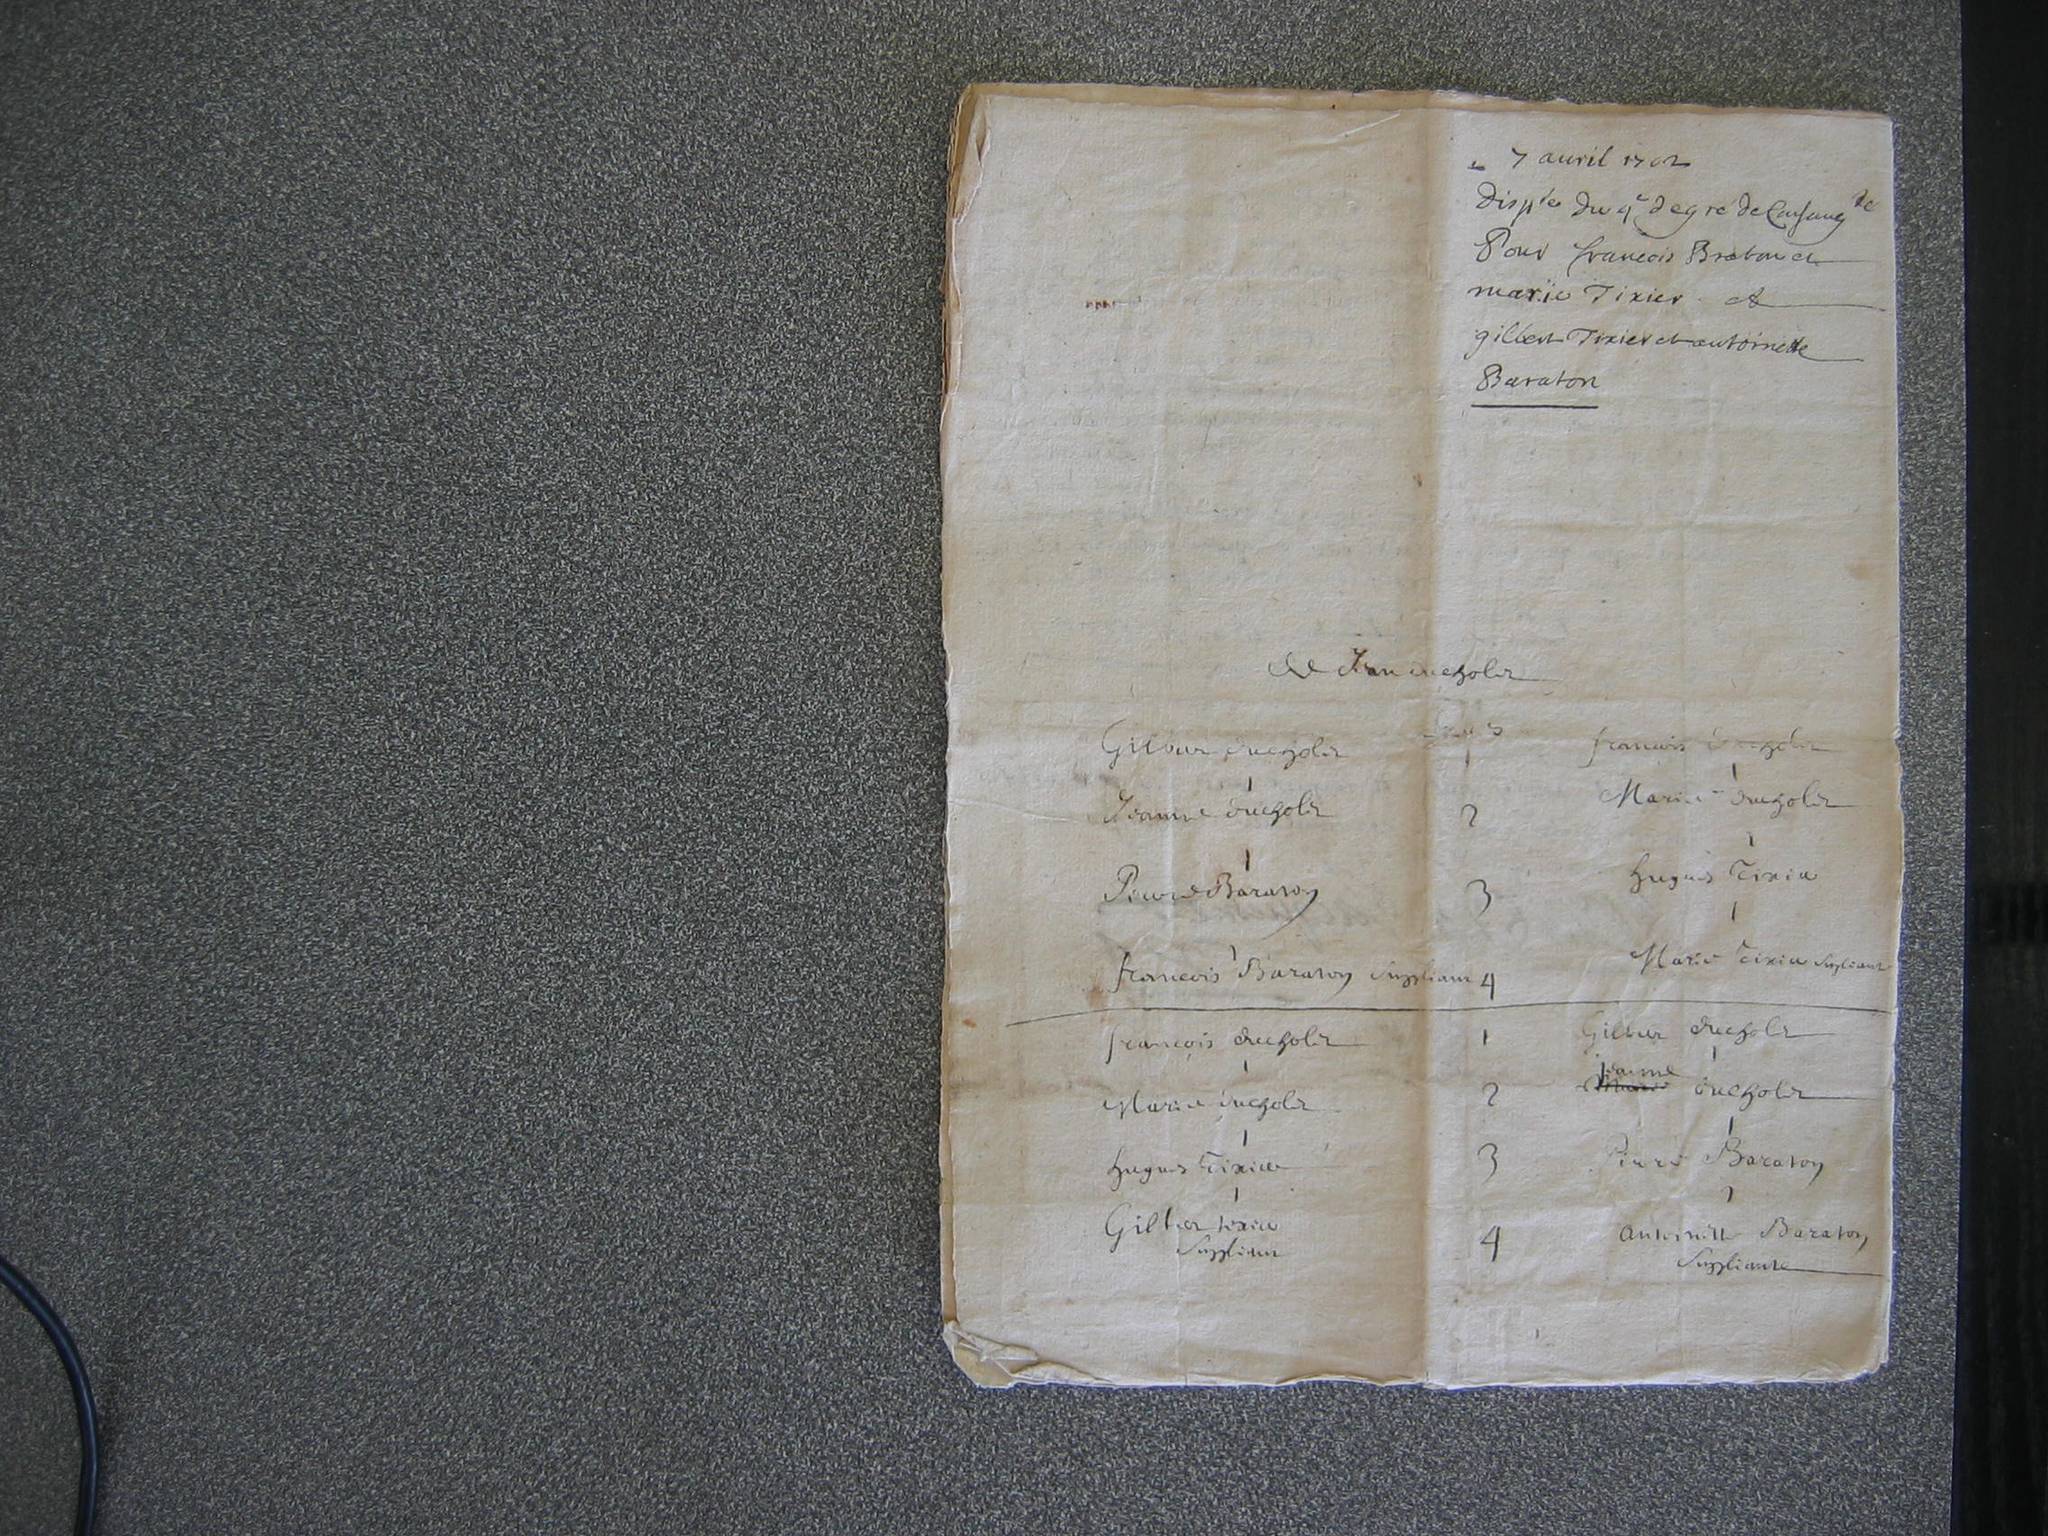 7 avril 1702
Disp^e du 4^e degré de Consang^té
Pour francois Braton et
marie Tixier et
gilbert Tixier et antoinette
Baraton
de Jean ducholet
Gilbert ducholet 1 francois ducholet
Jeanne ducholet 2 Marie ducholet
Pierre Baraton 3 hugues Tixier
francois Baraton Suppliant 4 Marie Tixier Suppliante
francois ducholet 1 Gilbert ducholet
Jeanne
Marie ducholet 2 Marie ducholet
hugues Tixier 3 Pierre Baraton
Gilbert tixier 4 Antoinette Baraton
Suppliant Suppliante